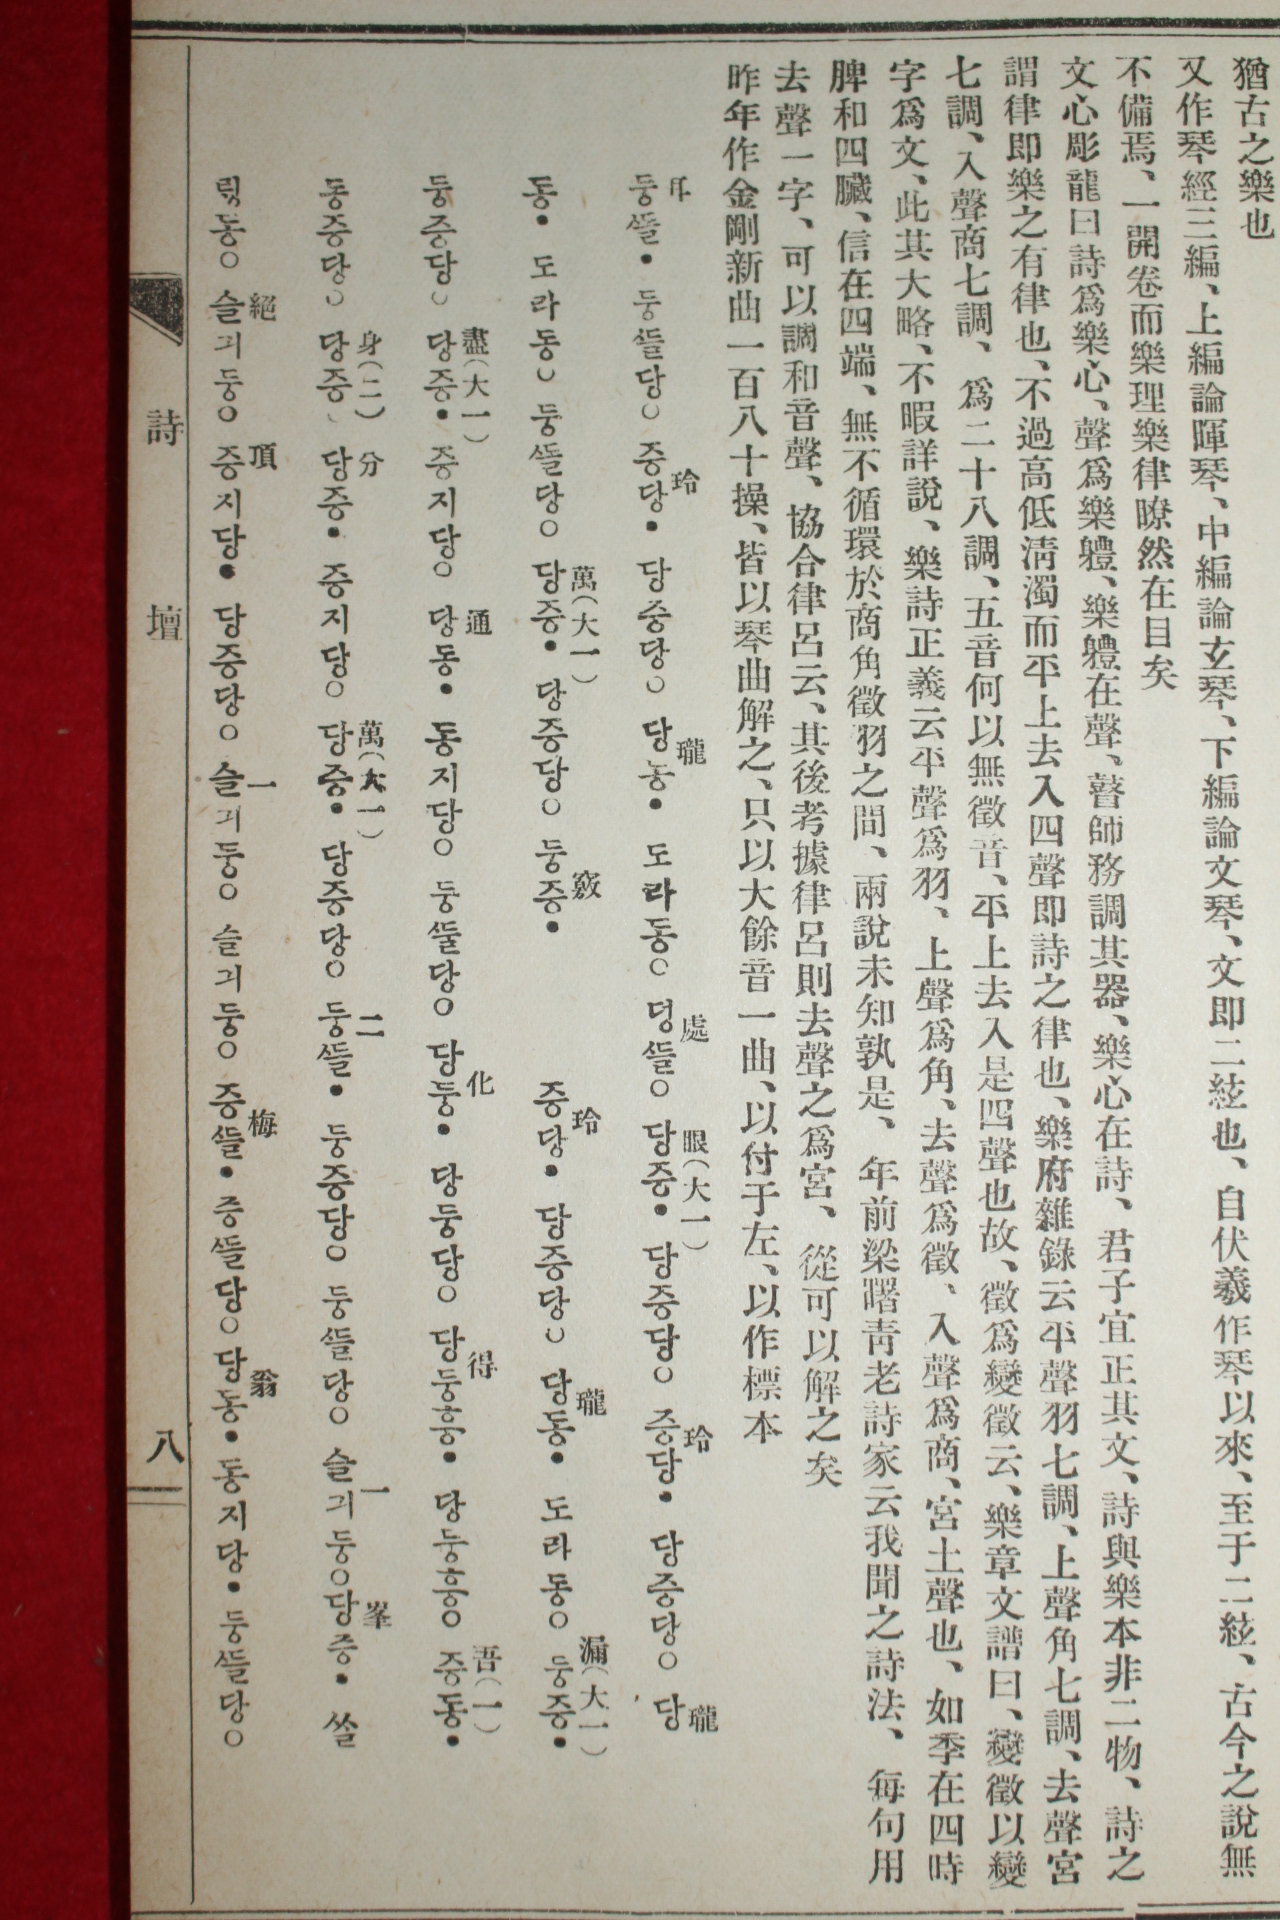 猶古之樂也
又作琴經三編、上編論暉琴、中編論玄琴、下編論文琴、文卽二絃也、自伏羲作琴以來、至于二絃、古今之說無
不備焉、一開卷而樂理樂律瞭然在目矣
文心彫龍曰詩爲樂心、聲爲樂軆、樂軆在聲、瞽師務調其器、樂心在詩、君子宜正其文、詩與樂本非二物、詩之
謂律卽樂之有律也、不過高低淸濁而平上去入四聲卽詩之律也、樂府雜錄云平聲羽七調、上聲角七調、去聲宮
七調、入聲商七調、爲二十八調、五音何以無徵音、平上去入是四聲也故、徵爲變徵云、樂章文譜曰、變徵以變
字爲文、此其大略、不暇詳說、樂詩正義云平聲爲羽、上聲爲角、去聲爲徵、入聲爲商、宮土聲也、如季在四時
脾和四臟、信在四端、無不循環於商角徵羽之間、兩說未知孰是、年前梁曙靑老詩家云我聞之詩法、每句用
去聲一字、可以調和音聲、協合律呂云、其後考據律呂則去聲之爲宮、從可以解之矣
昨年作金剛新曲一百八十操、皆以琴曲解之、只以大餘音一曲、以付于左、以作標本
耳 玲 瓏 處 眼(大一) 玲 瓏
둥뜰• 둥뜰당○ 증당• 당증당○ 당동• 도라동○ 덩뜰○ 당증• 당증당○ 증당• 당증당○ 당
萬(大一) 竅 玲 瓏 漏(大一)
동• 도라동○ 둥뜰당○ 당증• 당증당○ 둥증• 증당• 당증당○ 당동• 도라동○ 둥증•
盡(大一) 通 化 得 吾(一)
둥증당○ 당증• 증지당○ 당동• 동지당○ 둥뜰당○ 당둥• 당둥당○ 당둥흥• 당둥흥○ 증동•
身(二) 分 萬(大一) 二 一 峯
동증당○ 당증○ 당증• 증지당○ 당증• 당증당○ 둥뜰• 둥증당○ 둥뜰당○ 슬긔둥○ 당증• 쓸
絕 頂 一 梅 翁
동○ 슬긔둥○ 증지당• 당증당○ 슬긔둥○ 슬긔둥○ 증뜰• 증뜰당○ 당동• 동지당• 둥뜰당○
詩 壇 八